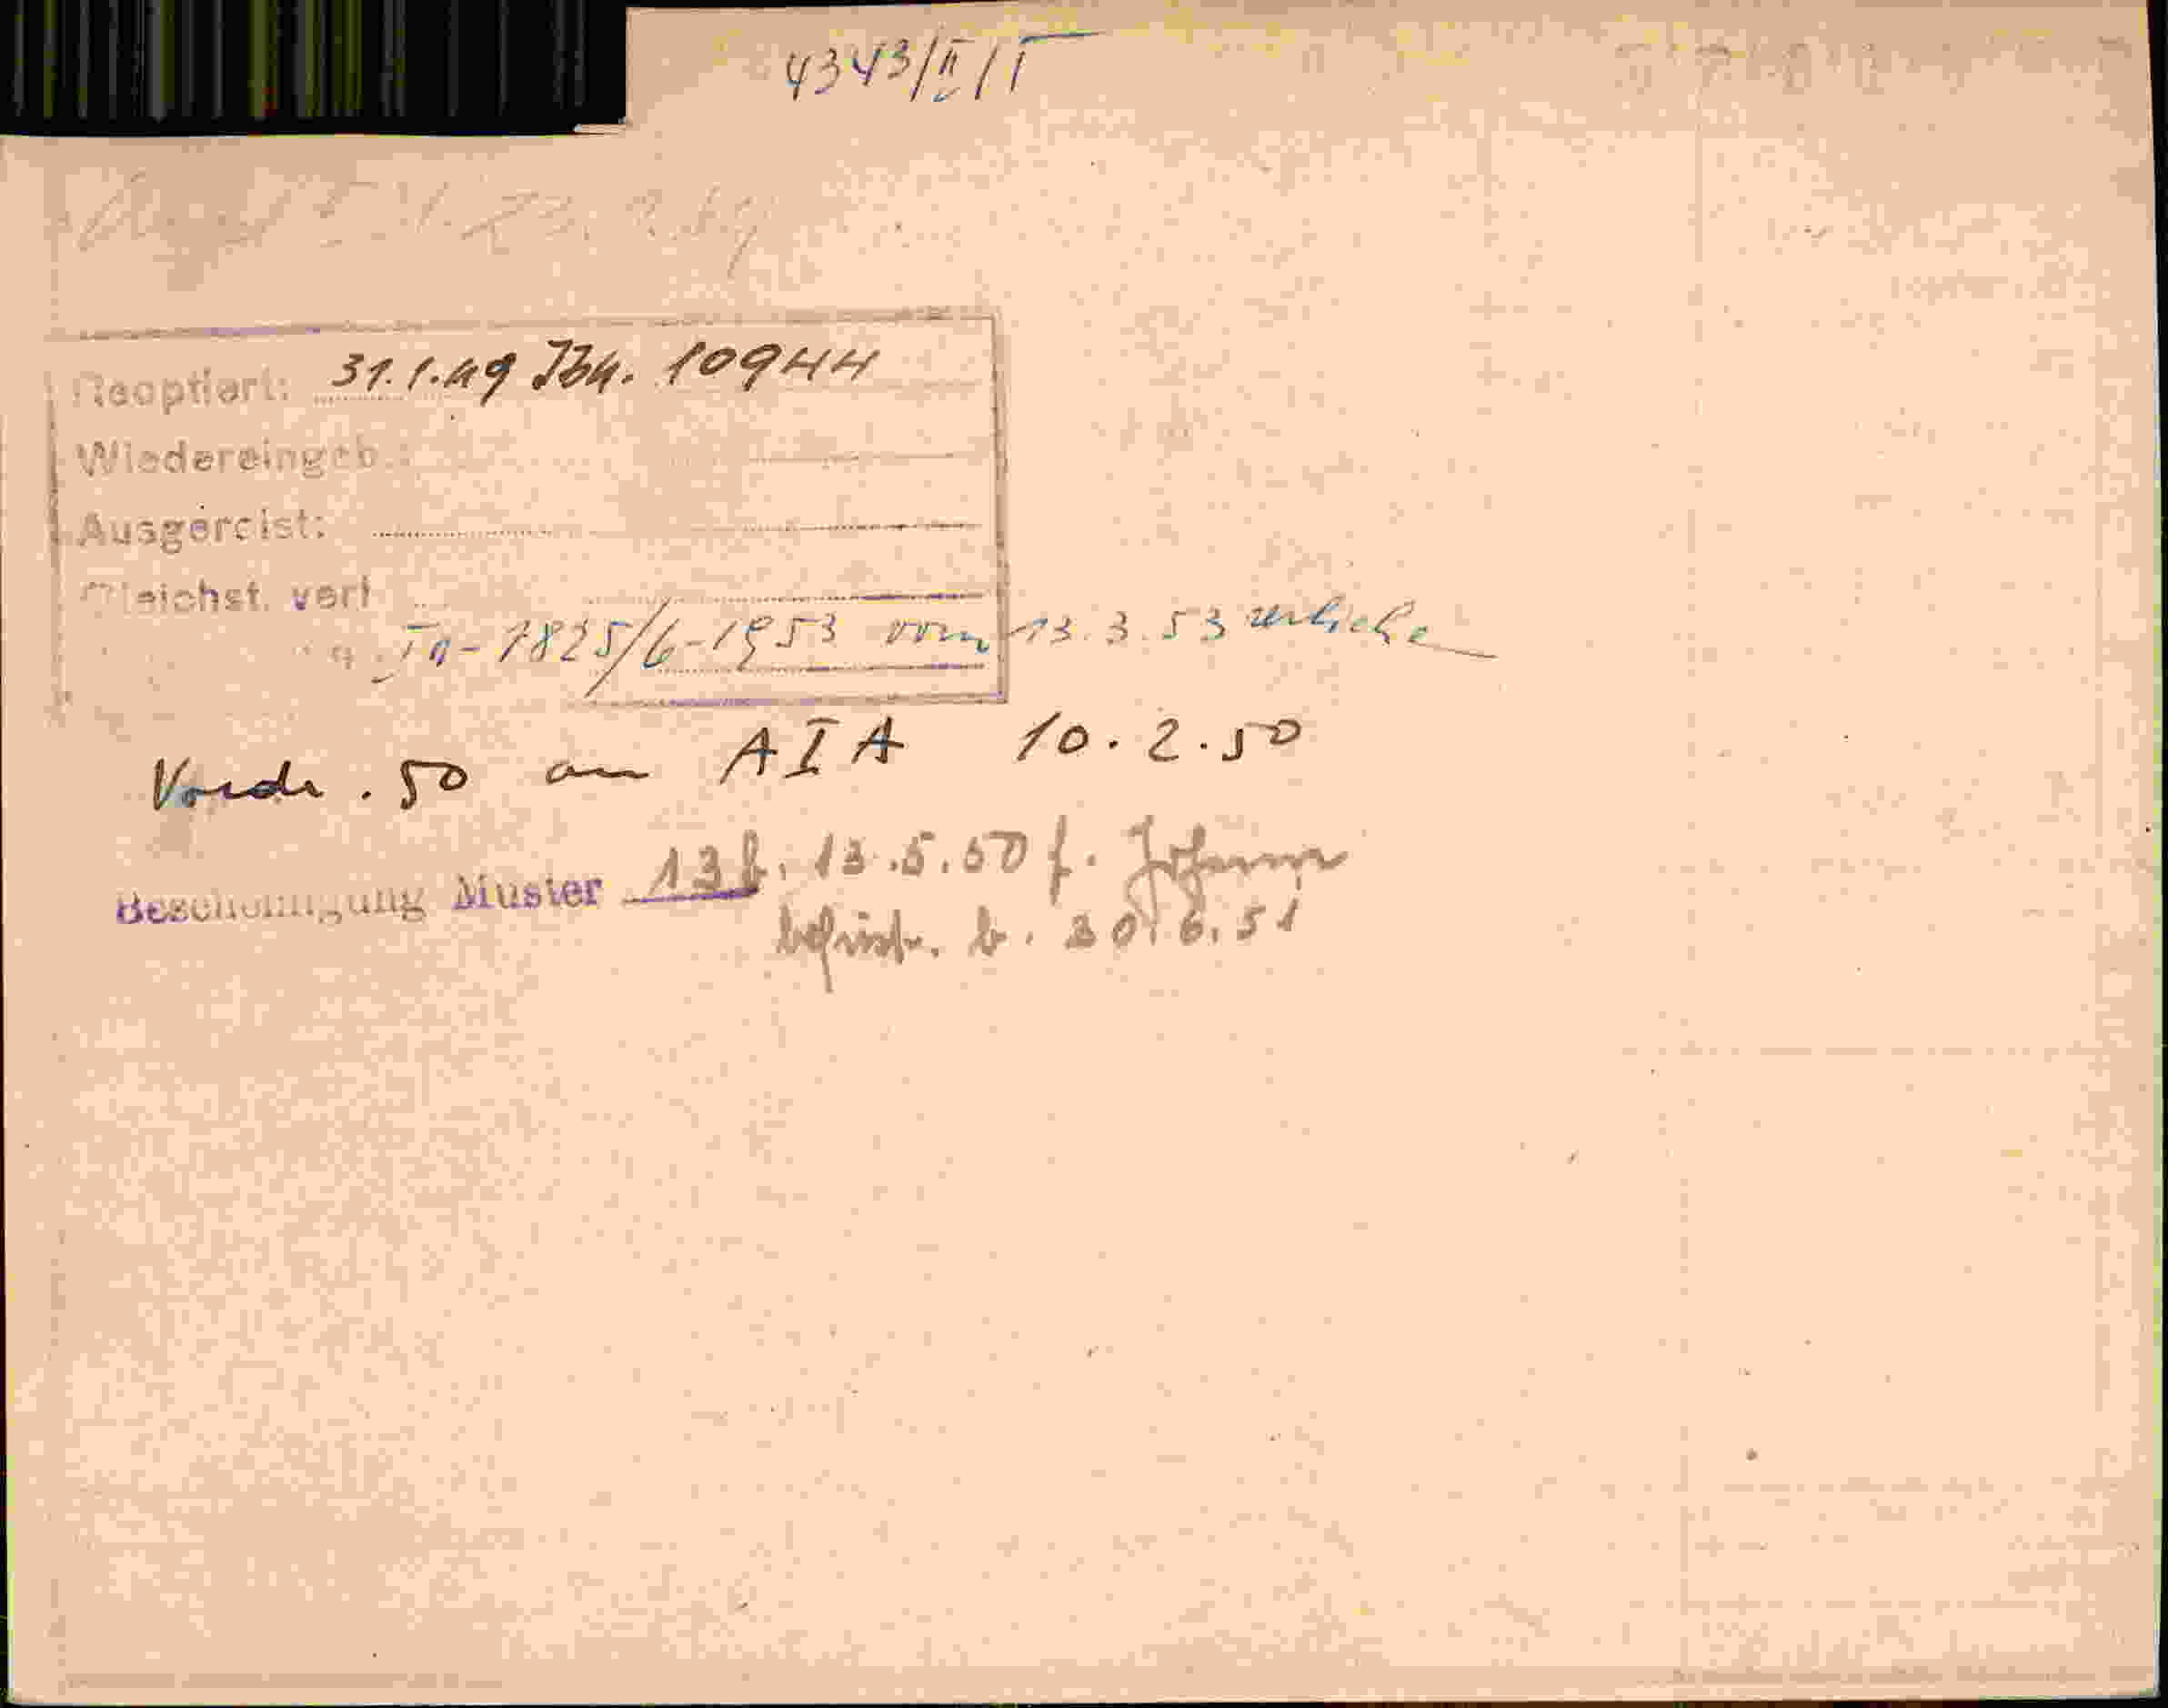 4343/II/I
Reoptiert: 31.1.49 Ibk. 10944
Wiedereingeb.:
Ausgereist:
Gleichst. verl
Ia-1825/6-1953 vom 13.3.53 verliehen
Vordr. 50 an AIA 10.2.50
Bescheinigung Muster 13 b. 13.5.50 f. Johann
befrist. b. 30.6.51